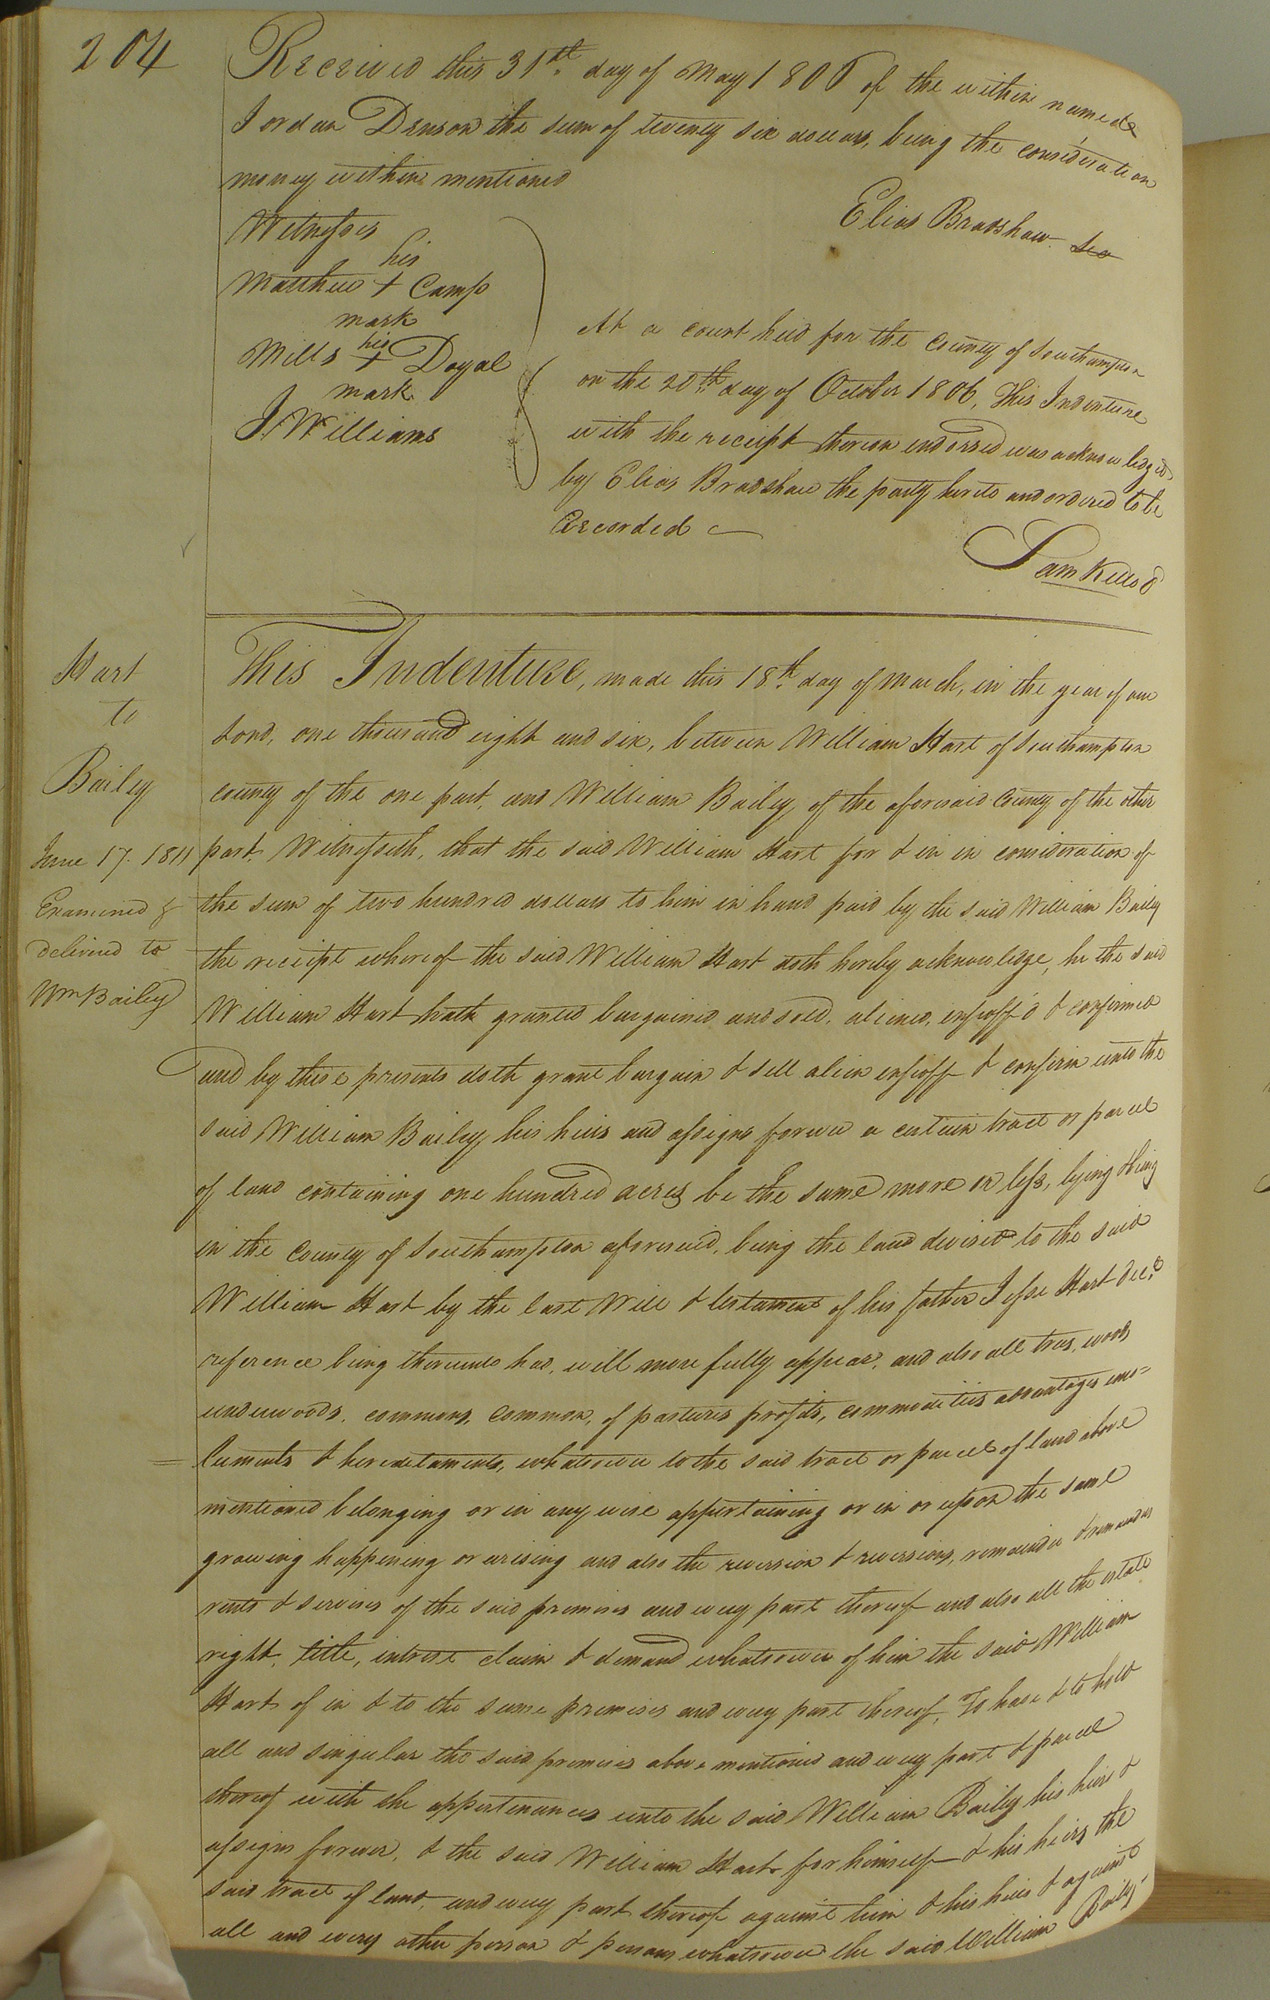 204
Received this 31st. day of May 1806 of the within named
Jordan Denson the sum of twenty six dollars, being the consideration
money within mentioned
Elias Bradshaw
Witnesses
his
Matthew + Camp
mark
his
Mills + Doyal
mark
J. Williams
At a court held for the County of Southampton
on the 20th. day of October 1806, This Indenture
with the receipt thereon endorsed was acknowledged
by Elias Bradshaw the party hereto and ordered to be
Recorded
Sam Kello
Hart
to
Bailey
June 17. 1811
Examined &
delivered to
Wm Bailey
This Indenture, made this 18th. day of March, in the year of our
Lord, one thousand eight and six, between William Hart of Southampton
county of the one part, and William Bailey of the aforesaid County of the other
part, Witnesseth, that the said William Hart for & in in consideration of
the sum of two hundred dollars to him in hand paid by the said William Baily
the receipt whereof the said William Hart doth hereby acknowledge, he the said
William Hart hath granted bargained, and sold, aliened, enfeoff'd & confirmed
and by these presents doth grant bargain & sell alien enfeoff & confirm unto the
said William Bailey, his heirs and assigns forever a certain tract or parcel
of land containing one hundred acres be the same more or less, lying & being
in the County of Southampton aforesaid, being the land devised to the said
William Hart by the last Will & testament of his father Jesse Hart decd.
reference being thereunto had, will more fully appear, and also all trees, woods
underwoods, commons, common, of pastures profits, commodities advantages emo=
=luments & hereditaments, whatsoever to the said tract or parcel of land above
mentioned belonging or in any wise appertaining or in or upon the same
growing happening or arising and also the reversion & reversions, remainder & remainders
rents & services of the said premises and every part thereof and also all the estate
right, title, interest claim & demand whatsoever of him the said William
Hart of in & to the same premises and every part thereof, To have & to hold
all and singular the said premises above mentioned and every part & parcel
thereof with the appertenances unto the said William Bailey his heirs &
assigns forever, & the said William Hart for himself & his heirs the
said tract of land, and every part thereof against him & his heirs & against
all and every other person & persons whatsoever the said William Baily